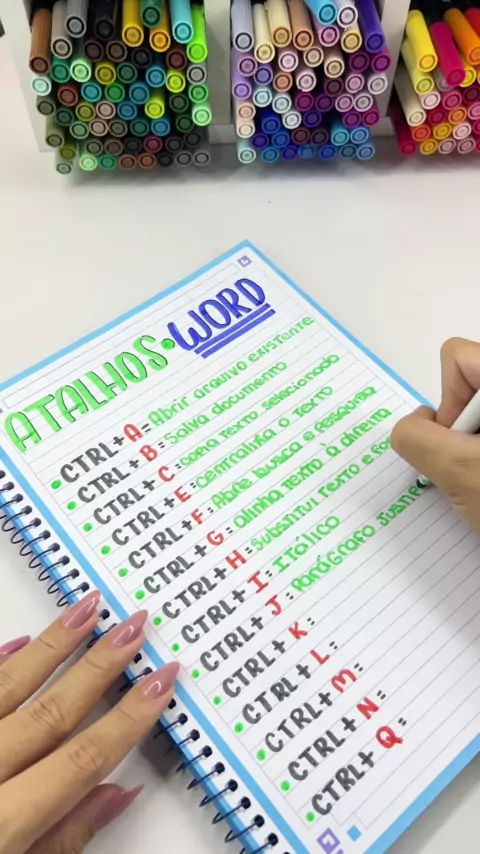 ATALHOS • WORD
• CTRL + A = Abrir arquivo existente
• CTRL + B = Salva documento
• CTRL + C = copia texto selecionado
• CTRL + E = centraliza o texto
• CTRL + F = Abre busca e pesquisa
• CTRL + G = alinha texto à direita
• CTRL + H = substitui texto e
• CTRL + I = Itálico
• CTRL + J = Parágrafo
• CTRL + K =
• CTRL + L =
• CTRL + M =
• CTRL + N =
• CTRL + Q =